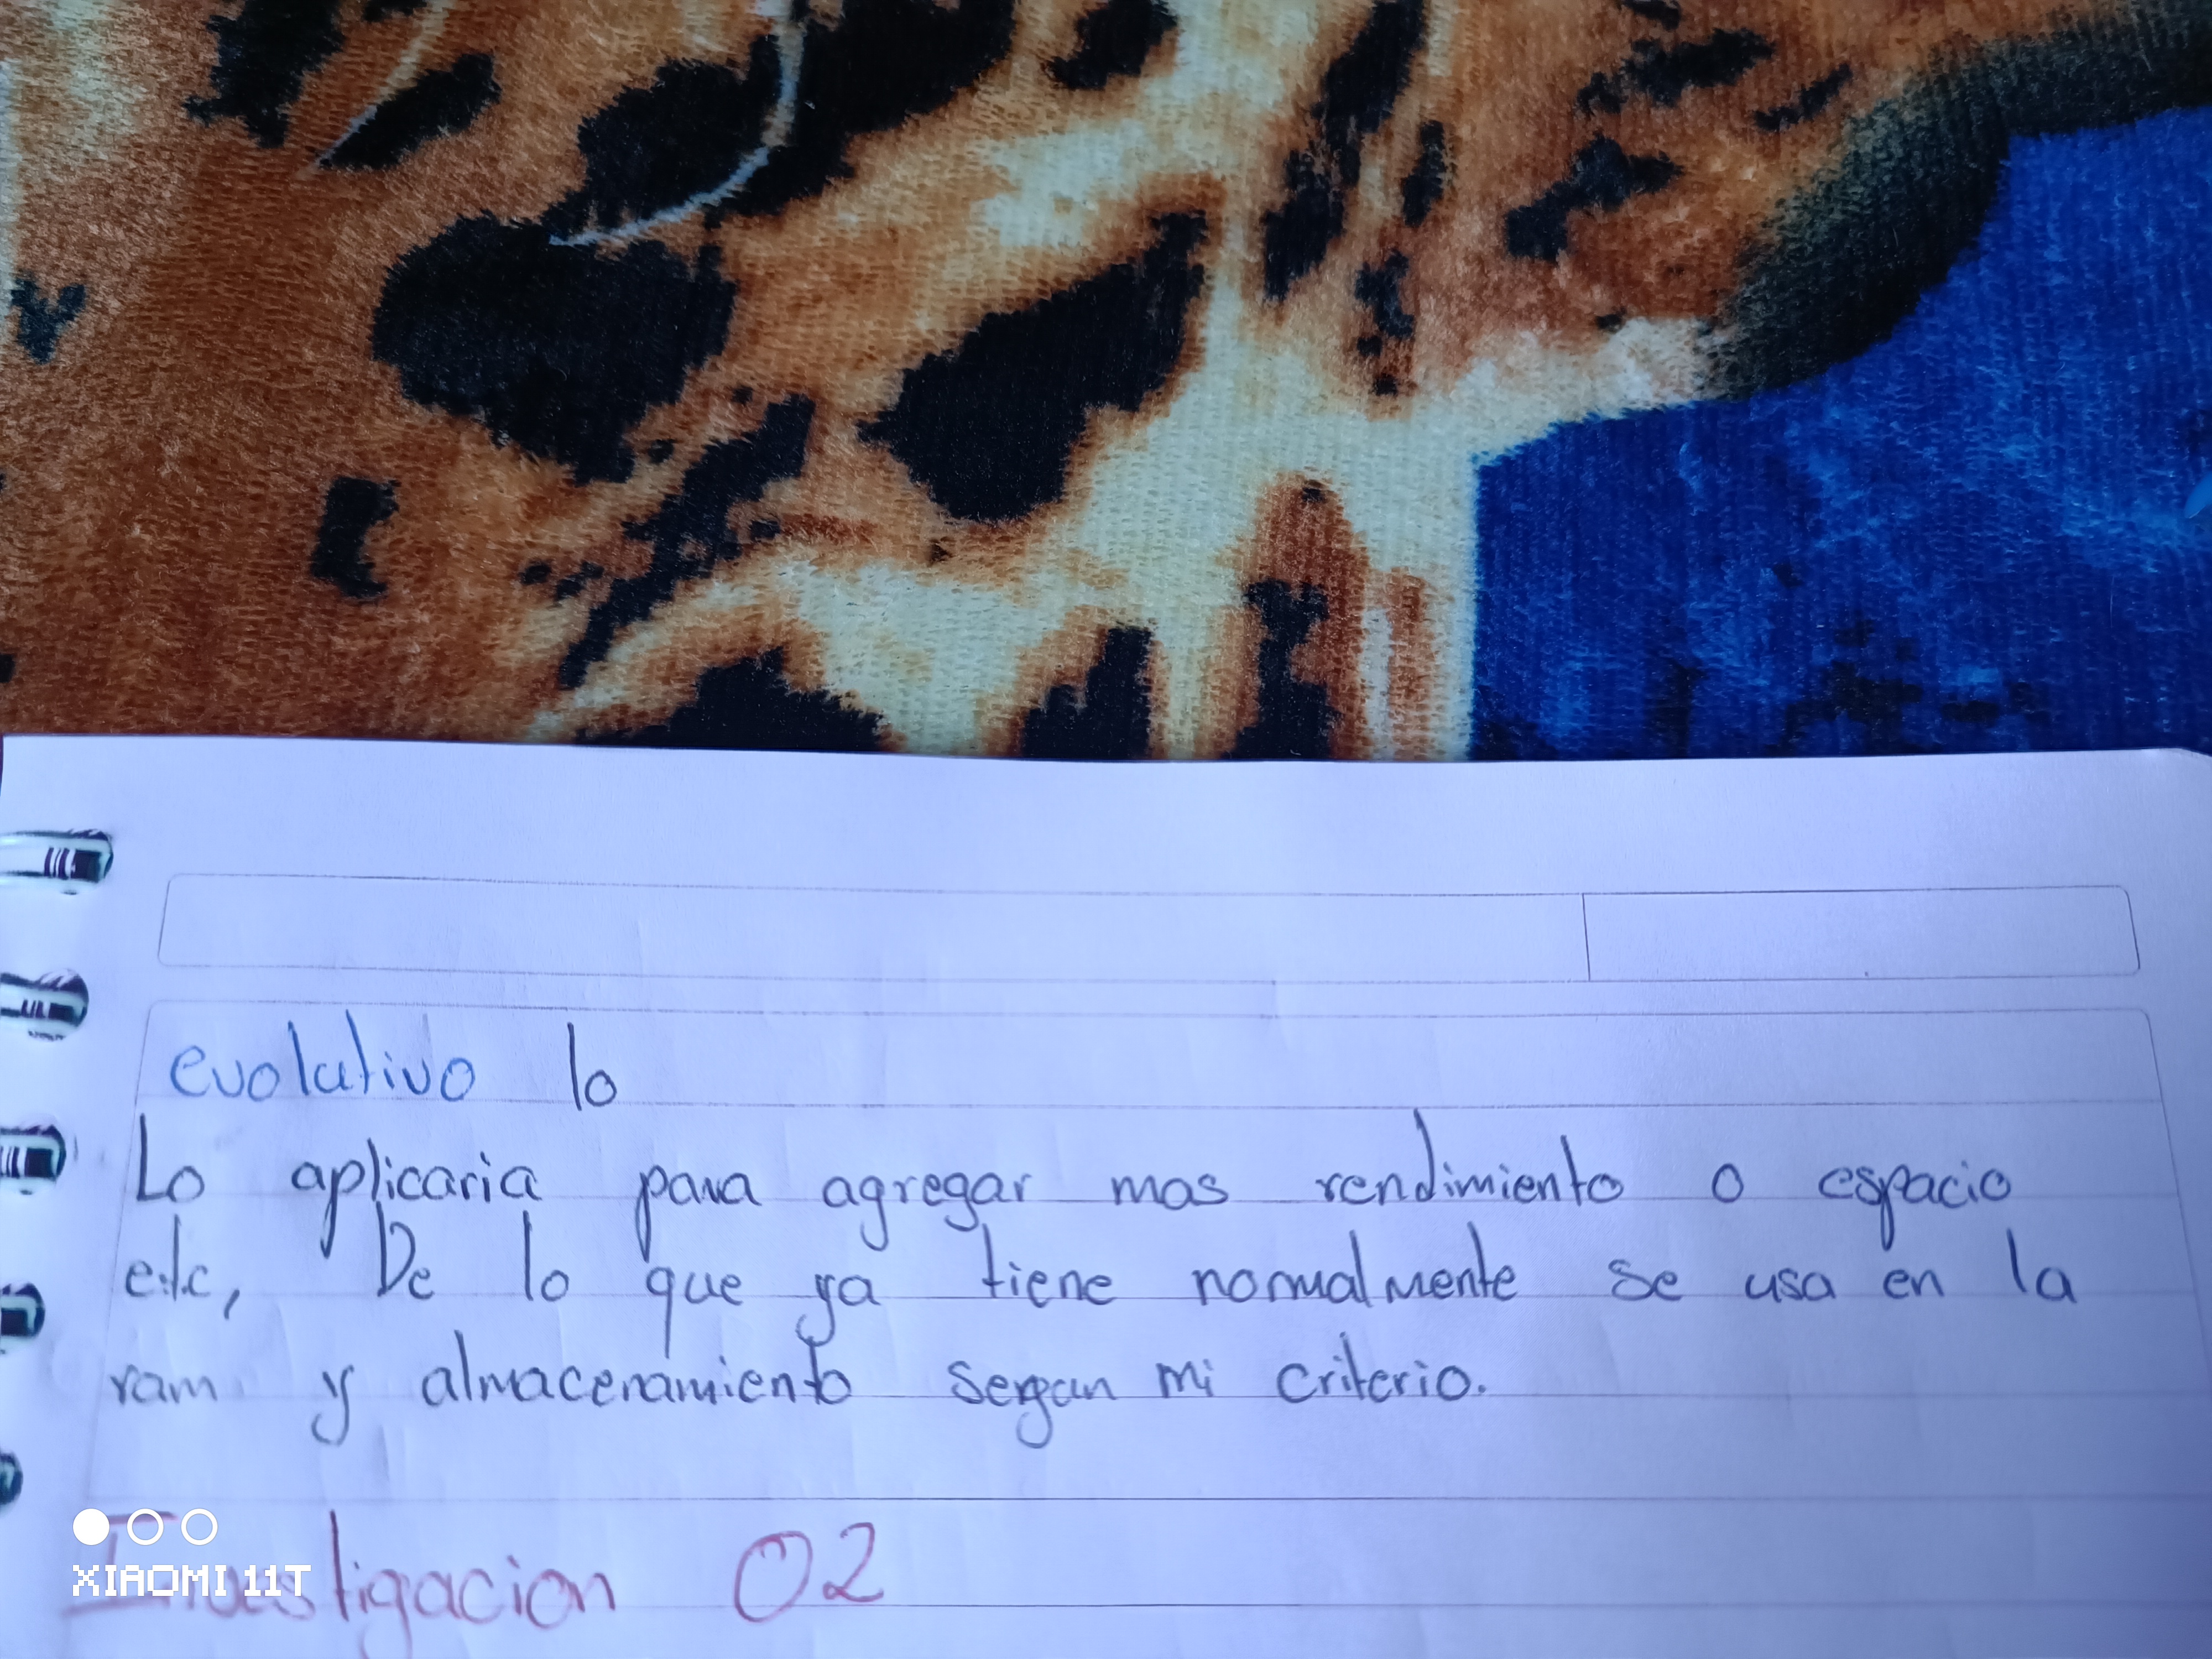 evolutivo lo
Lo aplicaria para agregar mas rendimiento o espacio
etc, De lo que ya tiene normalmente se usa en la
ram y almacenamiento segun mi criterio.
Investigacion 02
XIAOMI 11T